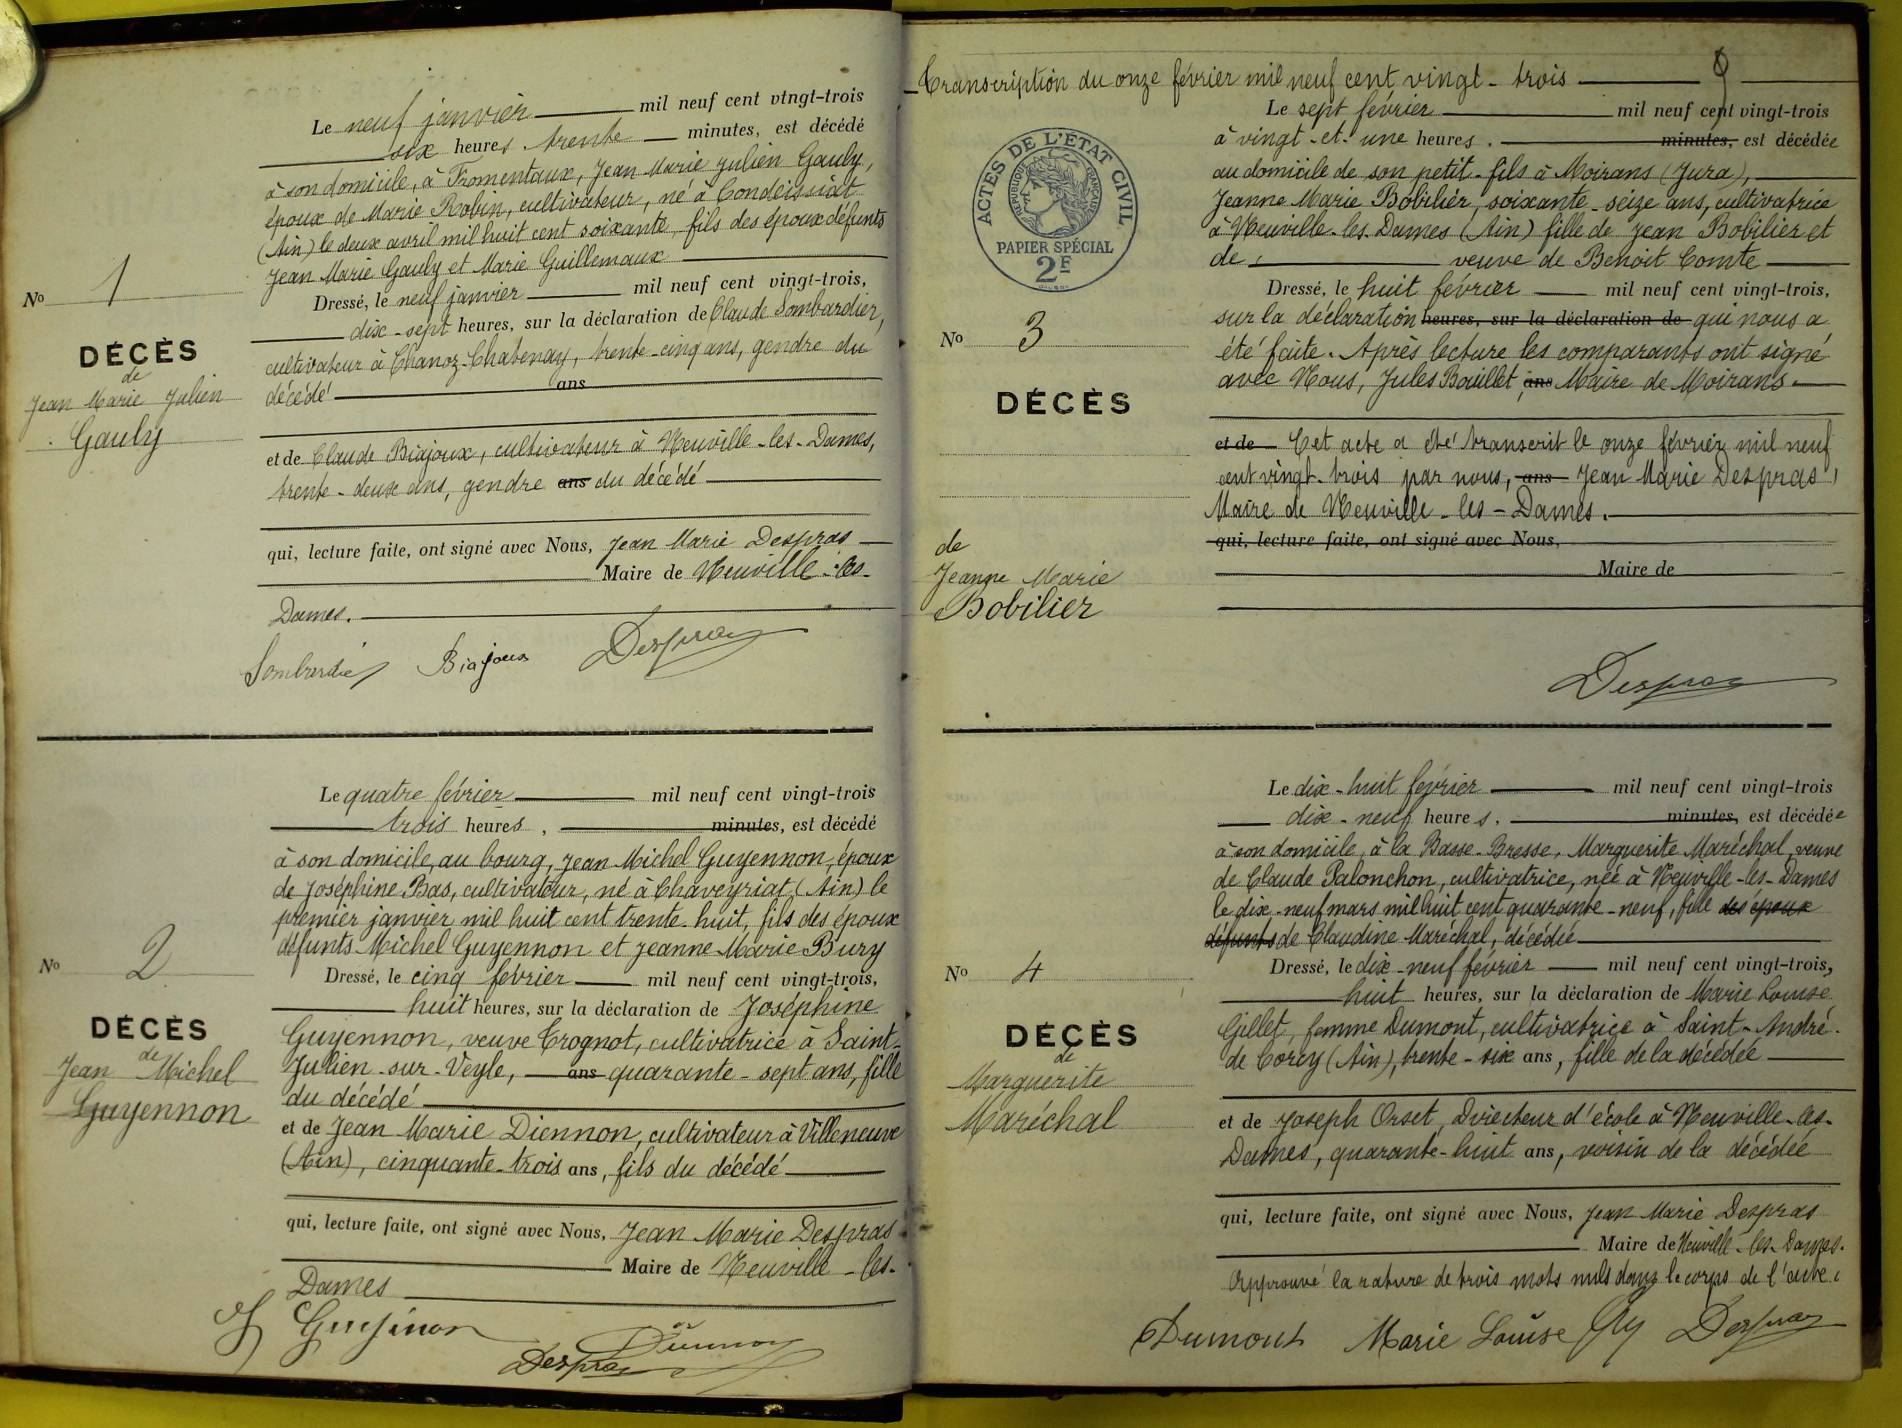 Le neuf janvier mil neuf cent vingt-trois
six heures trente minutes, est décédé
à son domicile, à Fromentaux, Jean Marie Julien Gauly,
époux de Marie Robin, cultivateur, né à Condeissiat
(Ain) le deux avril mil huit cent soixante, fils des époux défunts
Jean Marie Gauly et Marie Guillemaux
Dressé, le neuf janvier mil neuf cent vingt-trois,
dix-sept heures, sur la déclaration de Claude Lombardier,
cultivateur à Chanoz-Chatenay, trente-cinq ans, gendre du
ans
décédé
et de Claude Biajoux, cultivateur à Neuville-les-Dames,
trente-deux ans, gendre ans du décédé
qui, lecture faite, ont signé avec Nous, Jean Marie Despras
Maire de Neuville-les-
Dames.
Biajoux Despras
No 1
DÉCÈS
de
Jean Marie Julien
Gauly
Le quatre février mil neuf cent vingt-trois
trois heures, minutes, est décédé
à son domicile, au bourg, Jean Michel Guyennon, époux
de Joséphine Bas, cultivateur, né à Chaveyriat (Ain) le
premier janvier mil huit cent trente-huit, fils des époux
défunts Michel Guyennon et Jeanne Marie Bury
Dressé, le cinq février mil neuf cent vingt-trois,
huit heures, sur la déclaration de Joséphine
Guyennon, veuve Trognot, cultivatrice à Saint-
Julien-sur-Veyle, ans quarante-sept ans, fille
du décédé
et de Jean Marie Diennon, cultivateur à Villeneuve
(Ain), cinquante-trois ans, fils du décédé
qui, lecture faite, ont signé avec Nous, Jean Marie Despras
Maire de Neuville-les-
Dames
Despras
No 2
DÉCÈS
de
Jean Michel
Guyennon
Transcription du onze février mil neuf cent vingt-trois
Le sept février mil neuf cent vingt-trois
à vingt-et-une heures. minutes, est décédée
au domicile de son petit-fils à Moirans (Jura),
Jeanne Marie Bobilier, soixante-seize ans, cultivatrice
à Neuville-les-Dames (Ain) fille de Jean Bobilier et
de, veuve de Benoit Comte
Dressé, le huit février mil neuf cent vingt-trois,
sur la déclaration heures, sur la déclaration de qui nous a
été faite. Après lecture les comparants ont signé
avec Nous, Jules Bouillet, ans Maire de Moirans.
et de Cet acte a été transcrit le onze février mil neuf
cent vingt-trois par nous, ans Jean Marie Despras,
Maire de Neuville-les-Dames.
qui, lecture faite, ont signé avec Nous,
Maire de
Despras
ACTES DE L'ÉTAT CIVIL
RÉPUBLIQUE FRANÇAISE
PAPIER SPÉCIAL
2F
No 3
DÉCÈS
de
Jeanne Marie
Bobilier
Le dix-huit février mil neuf cent vingt-trois
dix-neuf heures. minutes, est décédée
à son domicile, à la Basse-Bresse, Marguerite Maréchal, veuve
de Claude Palonchon, cultivatrice, née à Neuville-les-Dames
le dix-neuf mars mil huit cent quarante-neuf, fille des époux
défunts de Claudine Maréchal, décédée
Dressé, le dix-neuf février mil neuf cent vingt-trois,
huit heures, sur la déclaration de Marie Louise
Gillet, femme Dumont, cultivatrice à Saint-André-
de Corcy (Ain), trente-six ans, fille de la décédée
et de Joseph Orset, Directeur d'école à Neuville-les-
Dames, quarante-huit ans, voisin de la décédée
qui, lecture faite, ont signé avec Nous, Jean Marie Despras
Maire de Neuville-les-Dames.
Approuvé la rature de trois mots nuls dans le corps de l'acte.
Dumont Marie Louise Despras
No 4
DÉCÈS
de
Marguerite
Maréchal